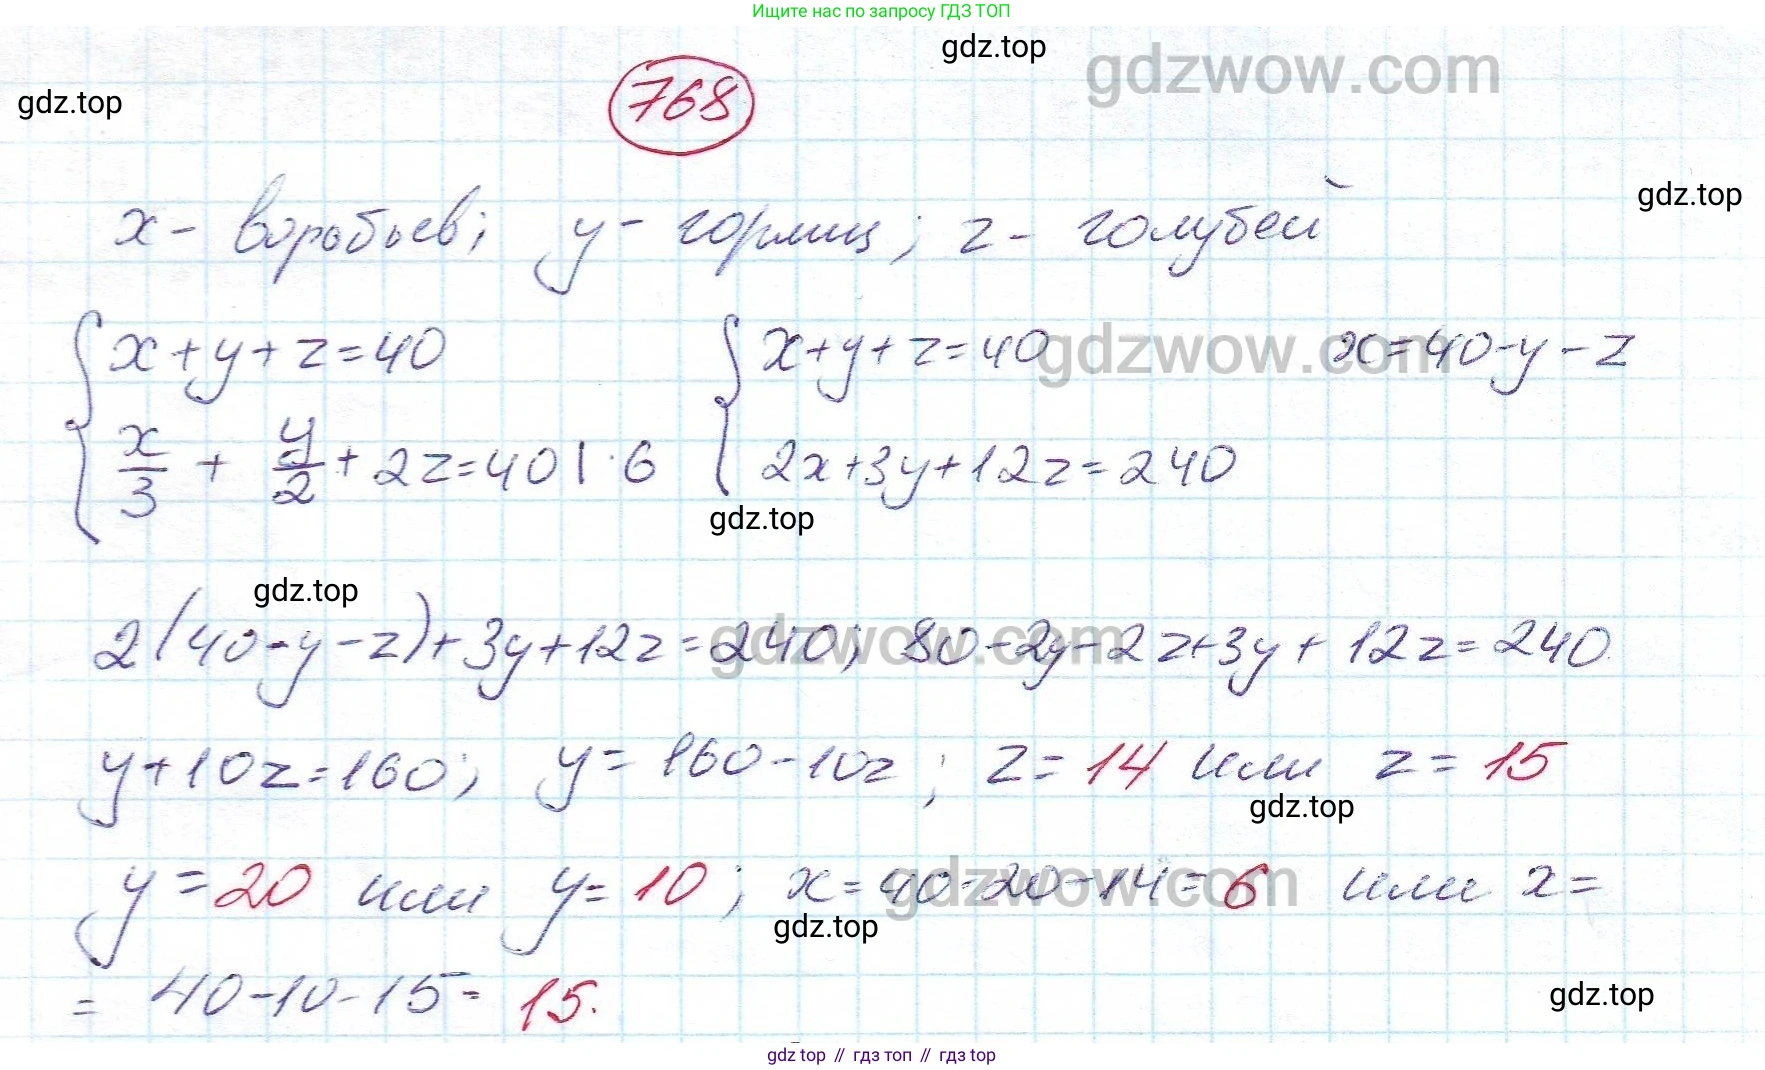 Ищите нас по запросу ГДЗ ТОП
gdz.top
gdzwow.com
gdz.top
768
gdz.top
x - воробьев; y - горлиц; z - голубей
{ x+y+z=40 { x+y+z=40 x=40-y-z
gdzwow.com
x/3 + y/2 + 2z=40 | ·6 2x+3y+12z=240
gdz.top
gdz.top
2(40-y-z)+3y+12z=240; 80-2y-2z+3y+12z=240
gdzwow.com
y+10z=160; y=160-10z; z=14 или z=15
gdz.top
y=20 или y=10; x=40-20-14=6 или x=
gdzwow.com
gdz.top
= 40-10-15= 15.
gdz.top
gdz top // гдз топ // гдз top